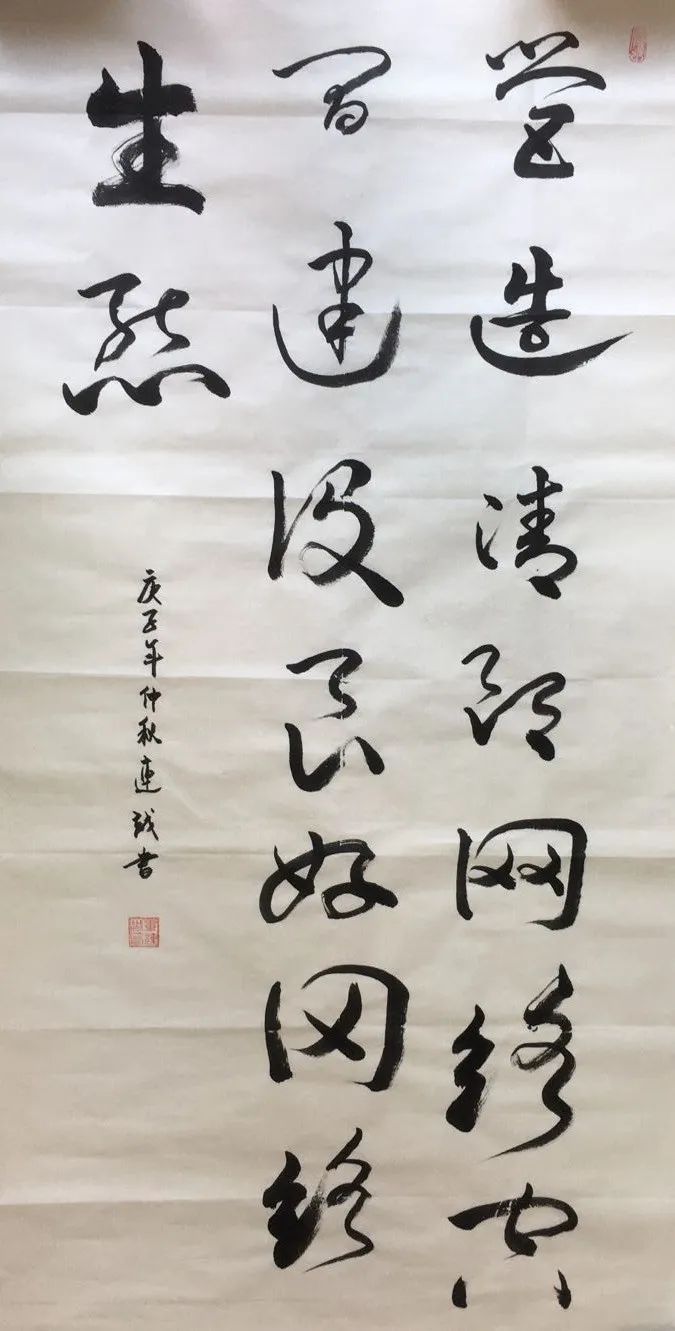 营造清朗网络空
间建设良好网络
生态
庚子年仲秋連钺書